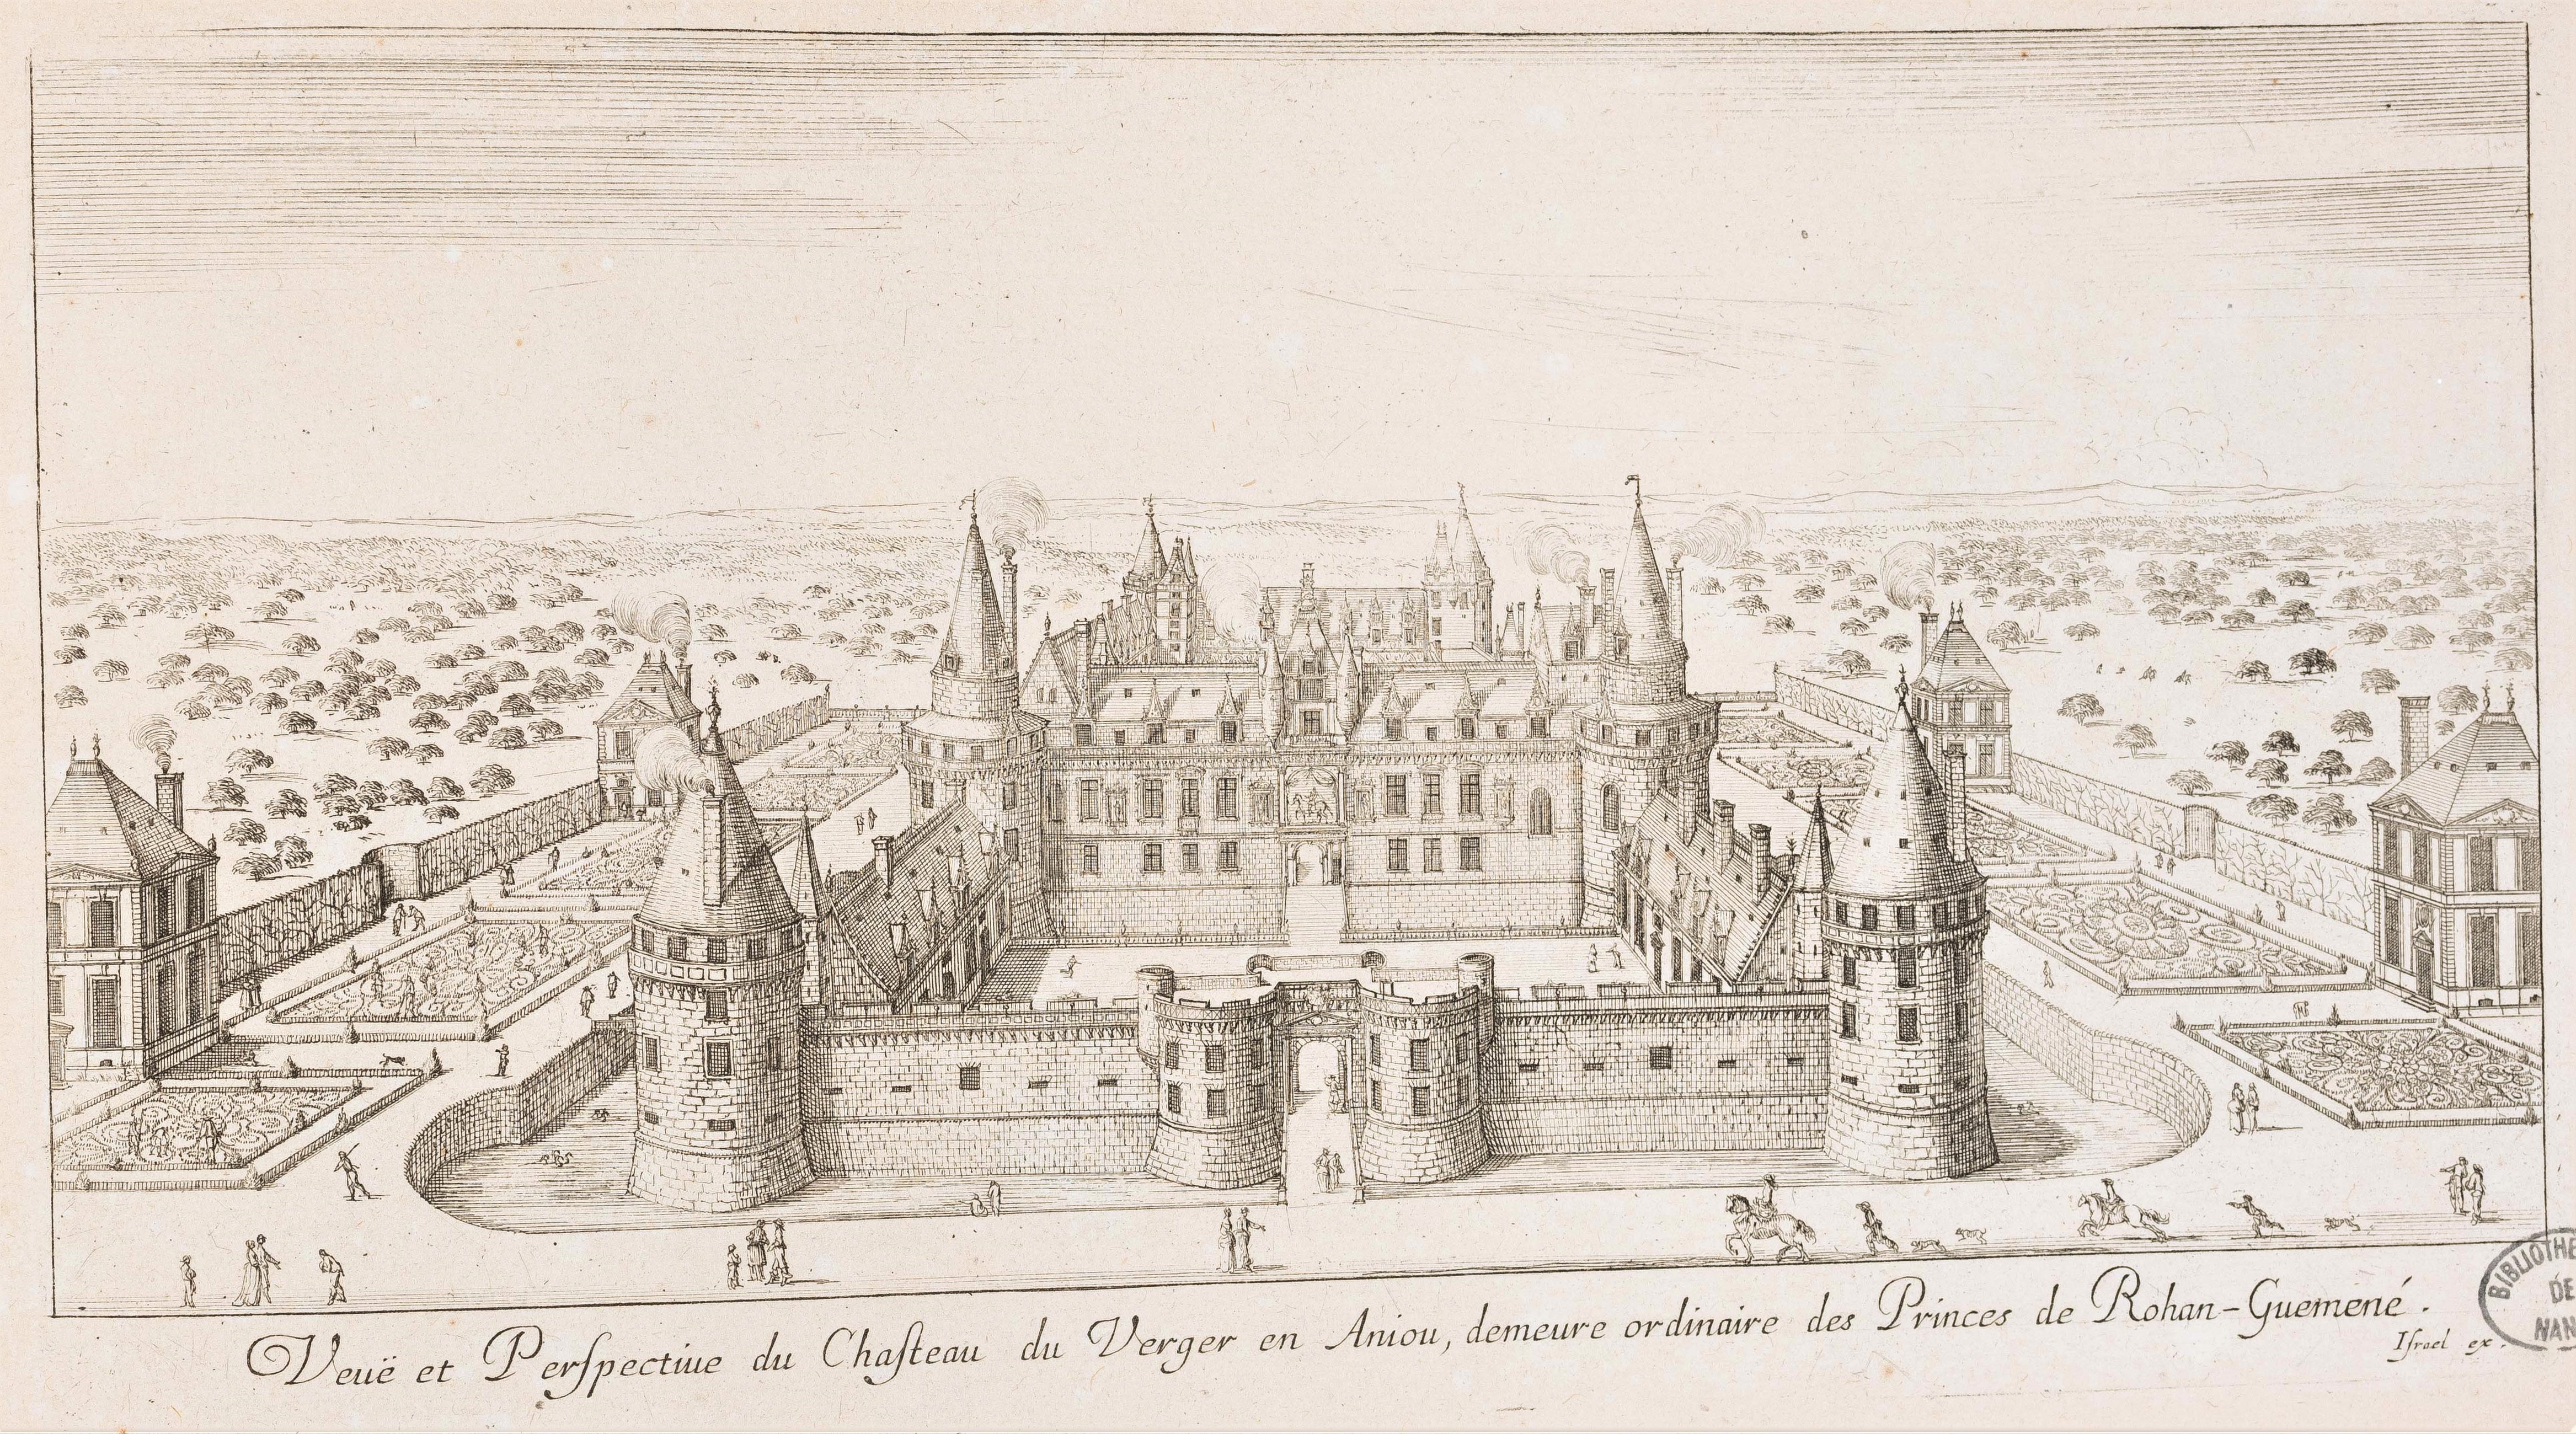 Veuë et Perſpectiue du Chaſteau du Verger en Aniou, demeure ordinaire des Princes de Rohan-Guemené.
Iſrael ex.
BIBLIOTHE
DE
NAN